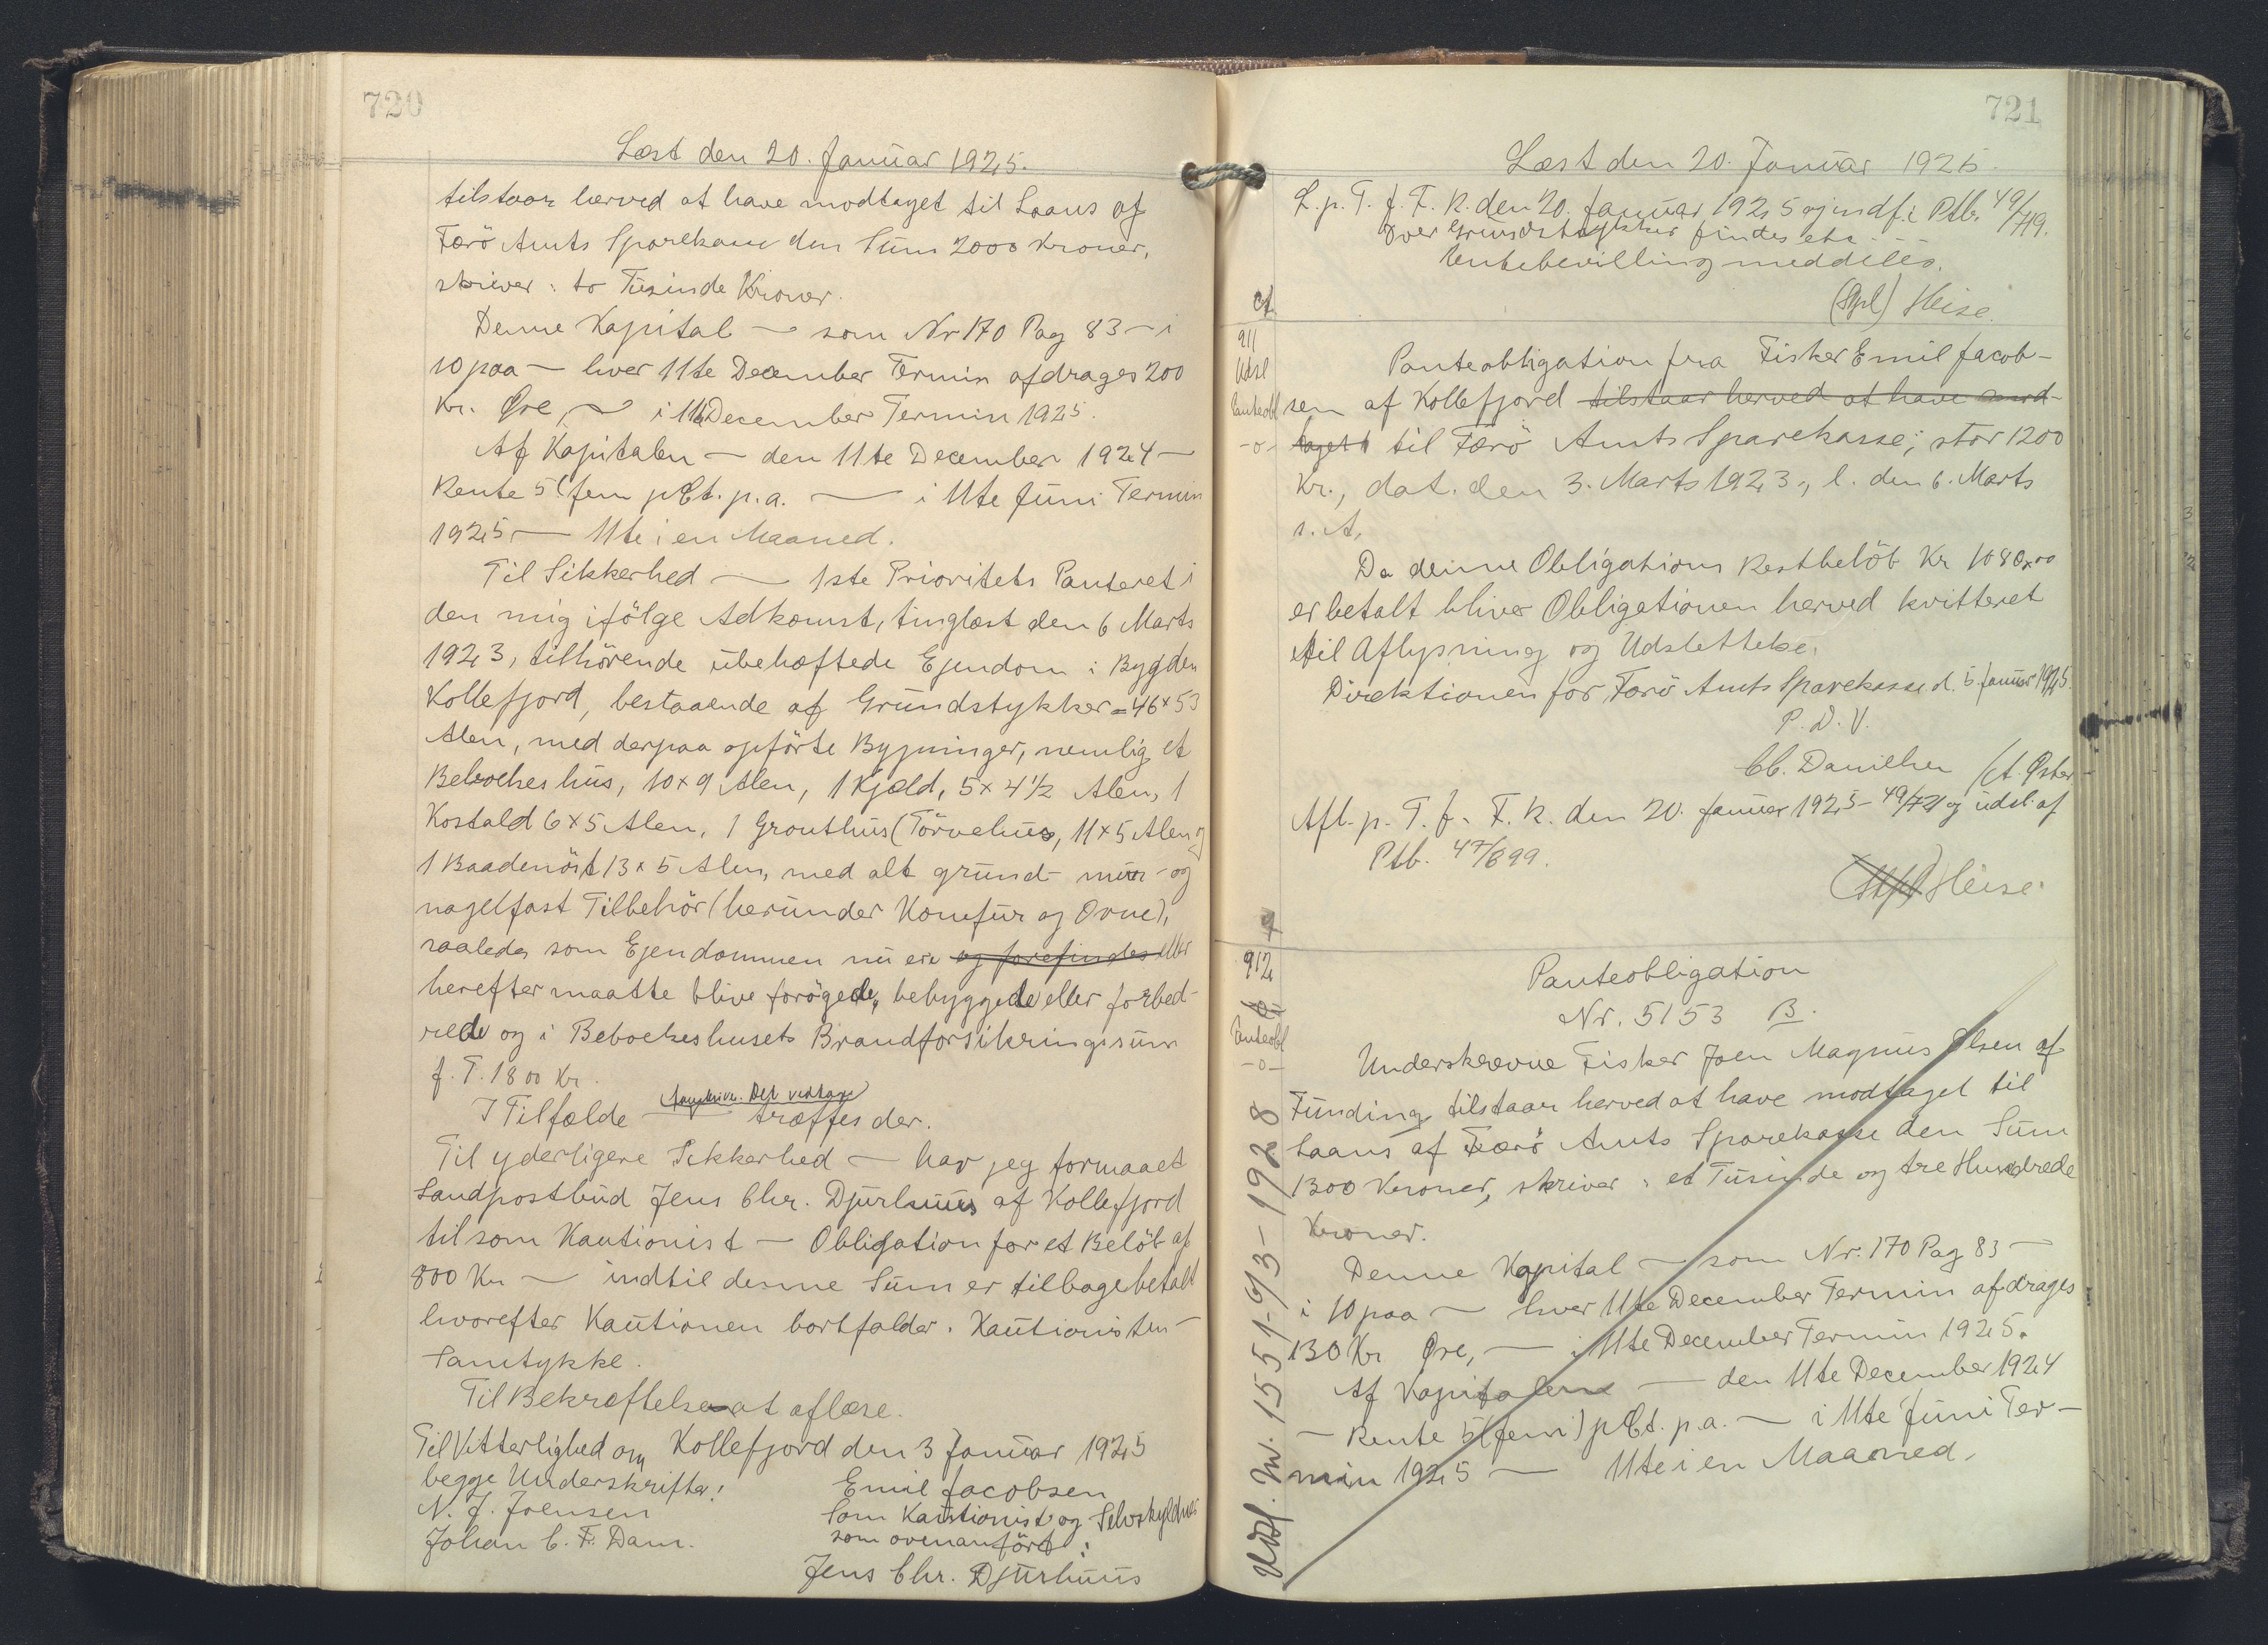 720
Læst den 20. Januar 1925.
tilstaar herved at have modtaget til Laans af
Færö Amts Sparekasse den Sum 2000 Kroner,
skriver: to Tusinde Kroner.
Denne Kapital — som Nr 170 Pag 83 — i
10 paa — hver 11te December Termin afdrages 200
Kr. Øre, — i 11te December Termin 1925.
Af Kapitalen — den 11te December 1924 —
Rente 5 (fem pCt. p.a. — i 11te Juni Termin
1925 — 11te i en Maaned.
Til Sikkerhed — 1ste Prioritets Panteret i
den mig ifölge Adkomst, tinglæst den 6 Marts
1923, tilhörende ubehæftede Ejendom i Bygden
Kollefjord, bestaaende af Grundstykker = 46 x 53
Alen, med derpaa opförte Bygninger, nemlig et
Beboelseshus, 10 x 9 Alen, 1 Kjæld, 5 x 4 1/2 Alen, 1
Kostald 6 x 5 Alen, 1 Grouthus (Törvehus, 11 x 5 Alen og
1 Baadenöst 13 x 5 Alen, med alt grund- mur- og
nagelfast Tilbehör (herunder Komfur og Ovne),
saaledes som Ejendommen nu er og forefindes eller
herefter maatte blive forögede, bebyggede eller forbed-
rede og i Beboelseshusets Brandforsikringssum
f. T. 1800 Kr.
I Tilfælde — træffes der.
Til yderligere Sikkerhed — har jeg formaaet
Landpostbud Jens Chr. Djurhuus af Kollefjord
til som Kautionist — Obligation for et Belöb af
800 Kr — indtil denne Sum er tilbagebetalt
hvorefter Kautionen bortfalder. Kautionisten —
Samtykke.
Til Bekræftelse at aflæse.
Til Vitterlighed om Kollefjord den 3 Januar 1925
begge Underskrifter: Emil Jacobsen
N. J. Joensen Som Kautionist og Selvskyldner
Johan C. F. Dam. som ovenanfört:
Jens Chr. Djurhuus
721
Læst den 20. Januar 1925.
L. p. T. f. F. R. den 20. Januar 1925 og indf. i Ptb. 49/719.
Over Grundstykker findes etc ...
Uutebevilling meddeles.
Heise.
ct.
911
Udsl
Panteobl
-o-
Panteobligation fra Fisker Emil Jacob-
sen af Kollefjord tilstaar herved at have mod-
taget til Færö Amts Sparekasse, stor 1200
Kr., dat. den 3. Marts 1923, l. den 6. Marts
s. A.
Da denne Obligations Restbelöb Kr 1080,00
er betalt bliver Obligationen herved kvitteret
til Aflysning og Udslettelse.
Direktionen for Færö Amts Sparekasse d. 5 Januar 1925.
P. D. V.
C. C. Danielsen / A. Øster-
Afl. p. T. f. F. R. den 20. Januar 1925 — 49/721 og udsl. af
Ptb. 47/899.
Heise.
912
Panteobl
-o-
Panteobligation
Nr. 5153 B.
Underskrevne Fisker Joen Magnus Olsen af
Funding tilstaar herved at have modtaget til
Laans af Færö Amts Sparekasse den Sum
1300 Kroner, skriver: et Tusinde og tre Hundrede
Kroner.
Denne Kapital — som Nr. 170 Pag 83 —
i 10 paa — hver 11te December Termin afdrages
130 Kr Øre, — i 11te December Termin 1925.
Af Kapitalen — den 11te December 1924
— Rente 5 (fem) pCt. p.a. — i 11te Juni Ter-
min 1925 — 11te i en Maaned.
Udsl. Nr. 1551-93-1928